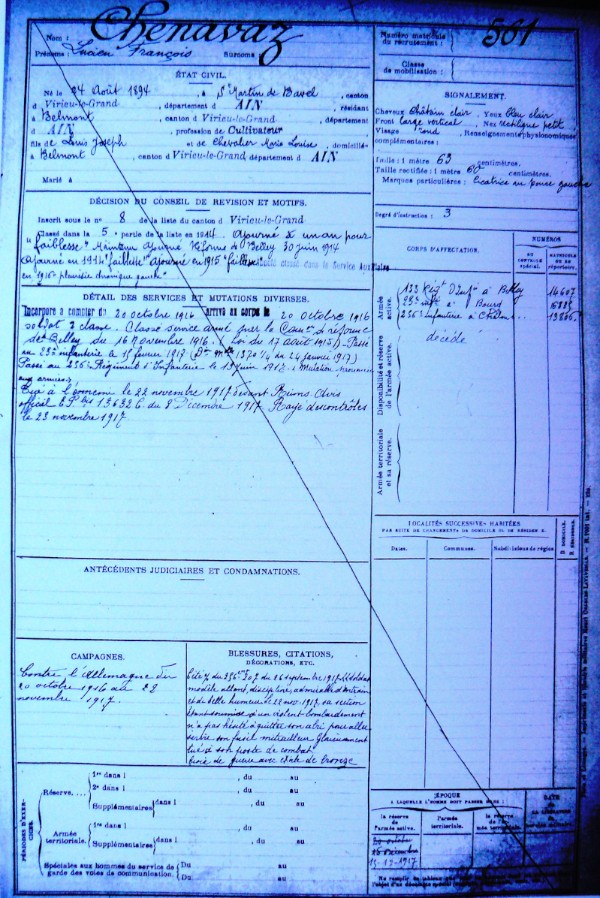 Nom : Chenavaz
Prénoms : Lucien François Surnoms :
Numéro matricule
du recrutement : 561
Classe
de mobilisation :
ÉTAT CIVIL.
Né le 24 Août 1894, à St Martin de Bavel, canton
d Virieu-le-Grand, département d AIN, résidant
à Belmont, canton d Virieu-le-Grand, département
d AIN, profession de Cultivateur
fils de Louis Joseph et de Chevalier Marie Louise, domiciliés
à Belmont, canton d Virieu-le-Grand département d AIN
Marié à
SIGNALEMENT.
Cheveux Châtain clair, Yeux bleu clair
Front large vertical, Nez rectiligne petit
Visage rond, Renseignements physionomiques
complémentaires :
Taille : 1 mètre 63 centimètres.
Taille rectifiée : 1 mètre centimètres.
Marques particulières : Cicatrice au pouce gauche
Degré d'instruction : 3
DÉCISION DU CONSEIL DE REVISION ET MOTIFS.
Inscrit sous le n° 8 de la liste du canton d Virieu-le-Grand
Classé dans la 5e partie de la liste en 1914. Ajourné à un an pour
faiblesse. Maintenu Ajourné Belley 30 juin 1914
Ajourné en 1914 "faiblesse" Ajourné en 1915 "faiblesse" classé dans le Service Auxiliaire
en 1916 pleurésie chronique gauche
DÉTAIL DES SERVICES ET MUTATIONS DIVERSES.
Incorporé à compter du 20 octobre 1916 arrivé au corps le 20 octobre 1916
soldat 2e classe. Classé service armé par la Comon de réforme
de Belley du 16 novembre 1916. (Loi du 17 août 1915). Passé
au 23e infanterie le 1er février 1917 ( du 24 janvier 1917)
Passé au 256e Régiment d'Infanterie le 13 juin 1917. Mutation
aux armées.
Tué à l'ennemi le 22 novembre 1917 devant Reims Avis
officiel 13632 du 8 Décembre 1917 Rayé des contrôles
le 23 novembre 1917.
CORPS D'AFFECTATION.
NUMÉROS
AU CONTRÔLE SPÉCIAL.
MATRICULE OU AU RÉPERTOIRE.
Armée active.
133 Régt d'Infie à Belley 14607
23e infie à Bourg
256e infanterie à Chalon
Disponibilité et réserve de l'armée active.
décédé
Armée territoriale et sa réserve.
LOCALITÉS SUCCESSIVES HABITÉES
PAR SUITE DE CHANGEMENTS DE DOMICILE OU DE RÉSIDENCE.
Dates. Communes. Subdivisions de région D. DOMICILE. R. RÉSIDENCE.
ANTÉCÉDENTS JUDICIAIRES ET CONDAMNATIONS.
CAMPAGNES.
Contre l'Allemagne du
20 octobre 1916 au 22
novembre 1917.
BLESSURES, CITATIONS,
DÉCORATIONS, ETC.
Cité du 256e 1917. Soldat
modèle allant, discipliné, admirable d'entrain
et de belle humeur le 22 nov. 1917, sa section
étant soumise à un violent bombardement
n'a pas hésité à quitter son abri pour aller
mettre son fusil mitrailleur Glorieusement
tué à son poste de combat
Croix de guerre avec étoile de bronze
PÉRIODES D'EXERCICES.
Réserve....
1re dans l , du au
2e dans l , du au
Supplémentaires dans l , du au
, du au
Armée territoriale.
1re dans l , du au
Supplémentaires dans l , du au
, du au
Spéciales aux hommes du service de
garde des voies de communication.
Du au
Du au
ÉPOQUE
À LAQUELLE L'HOMME DOIT PASSER DANS :
la réserve de l'armée active.
l'armée territoriale.
la réserve de l'armée territoriale.
DATE
15-12-1917